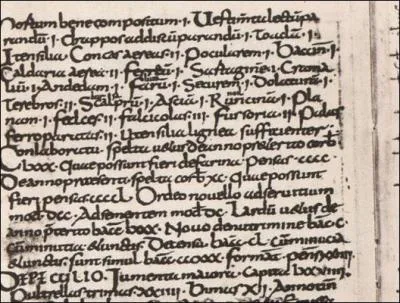 nostrum bene compositum · I · Vestimta lectu pa
randu · I · Drappos ad discu parandu · I · Toaclu · I ·
Utensilia · Concas aereas · II · Pocularem · I · Bacin · I ·
Caldaria aerea · II · Ferreu · I · Sartagine · I · Crama
liu · I · Andedam · I · Faru · I · Securem · I · Dolaturia · I ·
Terebros · II · Scalpru · I · Ascia · I · Runcina · I · Pla
nam · I · falces · II · falciculas · III · fursoria · II · Palas
ferro paratas · II · Utensilia lignea sufficienter ·
Conlaboratu · spelta uetus de anno preterito corb
Lxxx · Que possunt fieri de farina · Pensas · cccc ·
De anno praesenti spelta corb xc · Que possunt
fieri pensas · cccc L · Ordeo nouello ad seruitium
mod DCC · Ad sementem mod DC · Lardu uetus de
anno pterito bac Lxxx · Nouo de nutrimine bac · C ·
Cu minutia et unctis · De censu · bac · CL · cu minucia
et unctis · sunt simul bac ccxxx · format
DE PECULIO · Iumenta maiora · Capita
Putrellas trimas